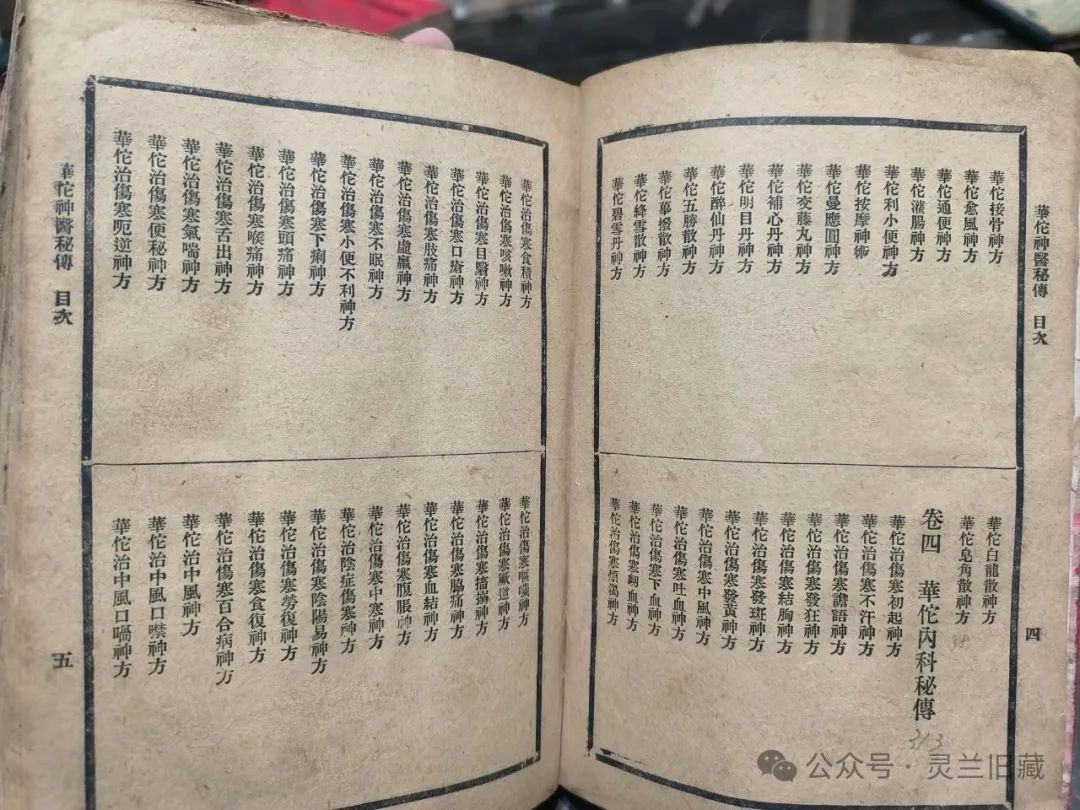 華佗神醫秘傳 目次
四
華佗接骨神方
華佗愈風神方
華佗通便神方
華佗灌腸神方
華佗利小便神方
華佗按摩神術
華佗曼應圓神方
華佗交藤丸神方
華佗補心丹神方
華佗明目丹神方
華佗醉仙丹神方
華佗五勝散神方
華佗蓽撥散神方
華佗絳雪散神方
華佗碧雪丹神方
華佗白龍散神方
華佗皂角散神方
卷四 華佗內科秘傳
華佗治傷寒初起神方
華佗治傷寒不汗神方
華佗治傷寒譫語神方
華佗治傷寒發狂神方
華佗治傷寒結胸神方
華佗治傷寒發斑神方
華佗治傷寒發黃神方
華佗治傷寒中風神方
華佗治傷寒吐血神方
華佗治傷寒下血神方
華佗治傷寒衂血神方
華佗治傷寒煩渴神方
313
華佗治傷寒食積神方
華佗治傷寒咳嗽神方
華佗治傷寒目翳神方
華佗治傷寒口瘡神方
華佗治傷寒肢痛神方
華佗治傷寒虛羸神方
華佗治傷寒不眠神方
華佗治傷寒小便不利神方
華佗治傷寒下痢神方
華佗治傷寒頭痛神方
華佗治傷寒喉痛神方
華佗治傷寒舌出神方
華佗治傷寒氣喘神方
華佗治傷寒便秘神方
華佗治傷寒呃逆神方
華佗治傷寒嘔噦神方
華佗治傷寒厥逆神方
華佗治傷寒搐搦神方
華佗治傷寒脇痛神方
華佗治傷寒血結神方
華佗治傷寒腹脹神方
華佗治傷寒中寒神方
華佗治陰症傷寒神方
華佗治傷寒陰陽易神方
華佗治傷寒勞復神方
華佗治傷寒食復神方
華佗治傷寒百合病神方
華佗治中風神方
華佗治中風口噤神方
華佗治中風口喎神方
華佗神醫秘傳 目次
五
公众号·灵兰旧藏